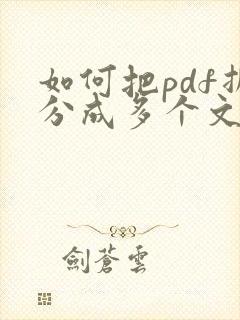 如何把pdf拆
分成多个文
劍蒼雲